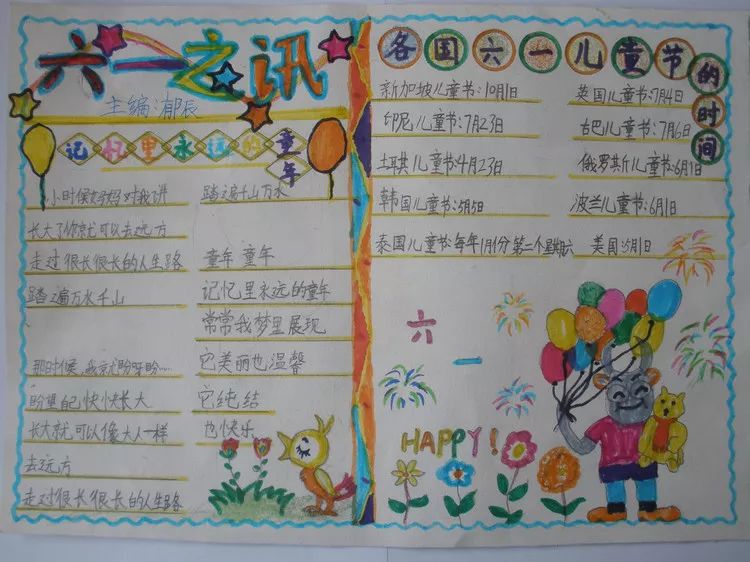 六一之讯
主编:郁辰
记忆里永远的童年
小时候妈妈对我讲
长大了你就可以去远方
走过很长很长的人生路
踏遍万水千山
那时候,我就盼呀盼……
盼望自己快快长大
长大就可以像大人一样
去远方
走过很长很长的人生路
踏遍千山万水
童年 童年
记忆里永远的童年
常常我梦里展现
它美丽也温馨
它纯结
也快乐
各国六一儿童节的时间
新加坡儿童节:10月1日
英国儿童节:7月4日
印尼儿童节:7月23日
古巴儿童节:7月6日
土耳其儿童节4月23日
俄罗斯儿童节:6月1日
韩国儿童节:5月5日
波兰儿童节:6月1日
泰国儿童节:每年1月份第二个星期六
美国:5月1日
六一
HAPPY!